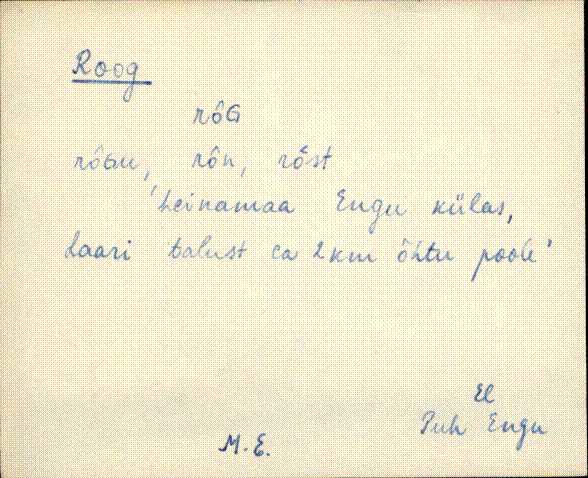 Roog
rôG
rôGu, rôn, rôst
'heinamaa Engu külas,
Laari talust ca 2 km õhtu poole'
El
Puh Engu
M.E.